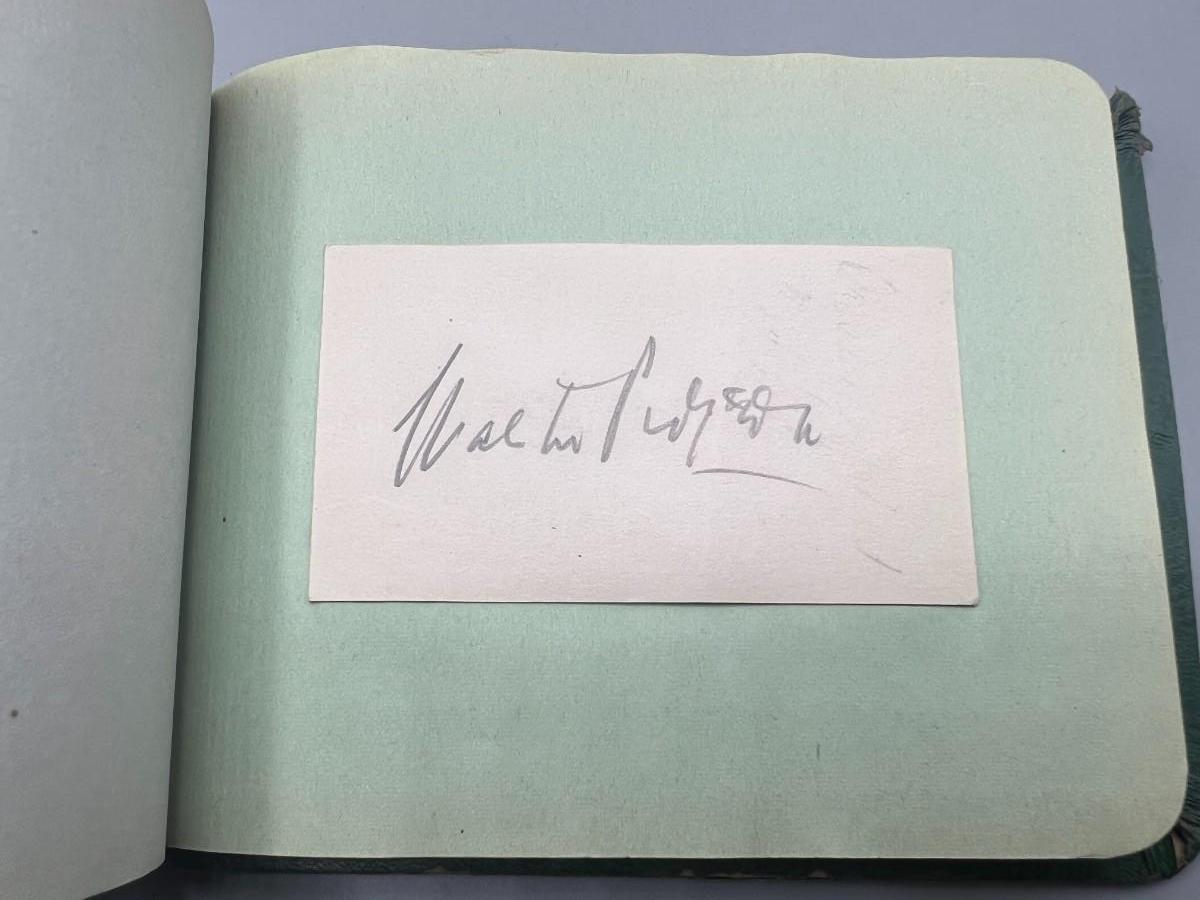 Walter Pidgeon